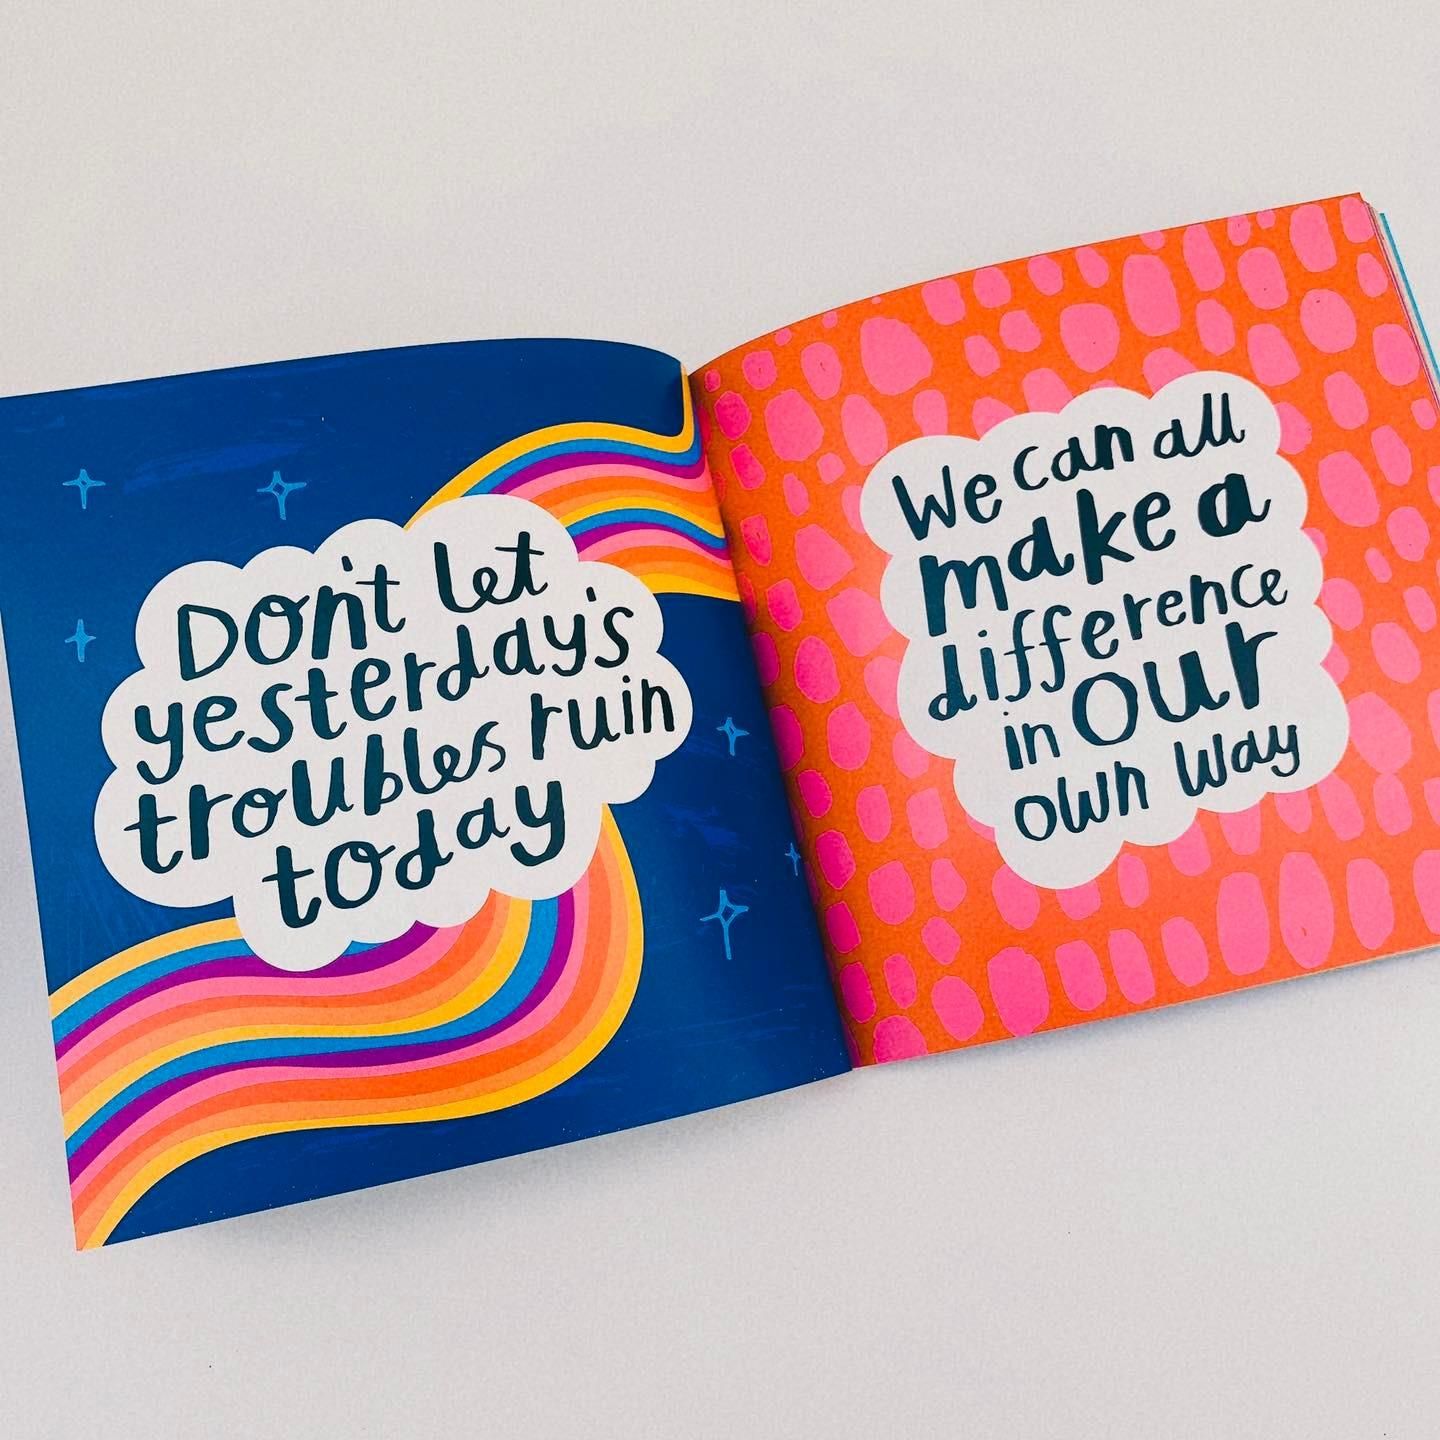 Don't let
yesterday's
troubles ruin
today
We can all
make a
difference
in our
own way